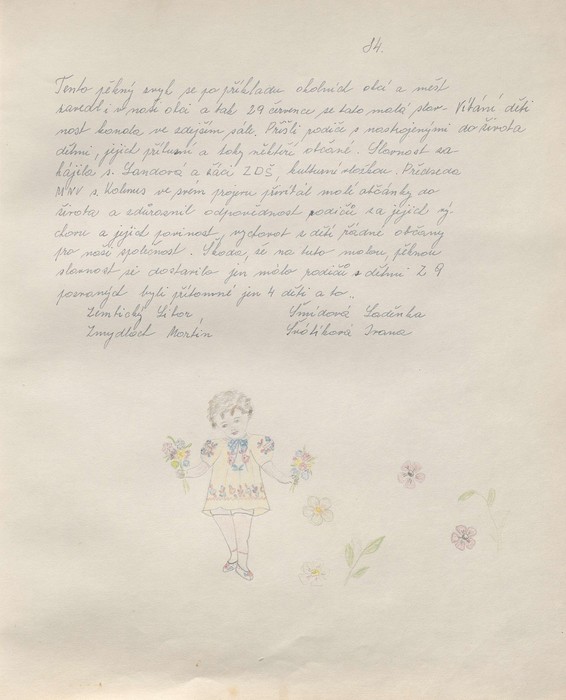 84.
Tento pěkný zvyk se po příkladu okolních obcí a měst
zavedl i v naší obci a tak 29 července se tato malá slav- Vítání dětí
nost konala ve zdejším sále. Přišli rodiče s nastrojenými do života
dětmi, jejich příbuzní a taky někteří občané. Slavnost za
hájila s. Landová a žáci ZDŠ, kulturní vložkou. Předseda
MNV s. Kolmus ve svém projevu přivítal malé občánky do
života a zdůraznil odpovědnost rodičů za jejich vý-
chovu a jejich povinost, vychovat z dětí řádné občany
pro naši společnost. Škoda, že na tuto malou, pěknou
slavnost se dostavilo jen málo rodičů s dětmi Z 9
pozvaných byli přítomné jen 4 děti a to..
Zemtický Libor Šmídová Laděnka
Zmydlach Martin Svátíková Ivana